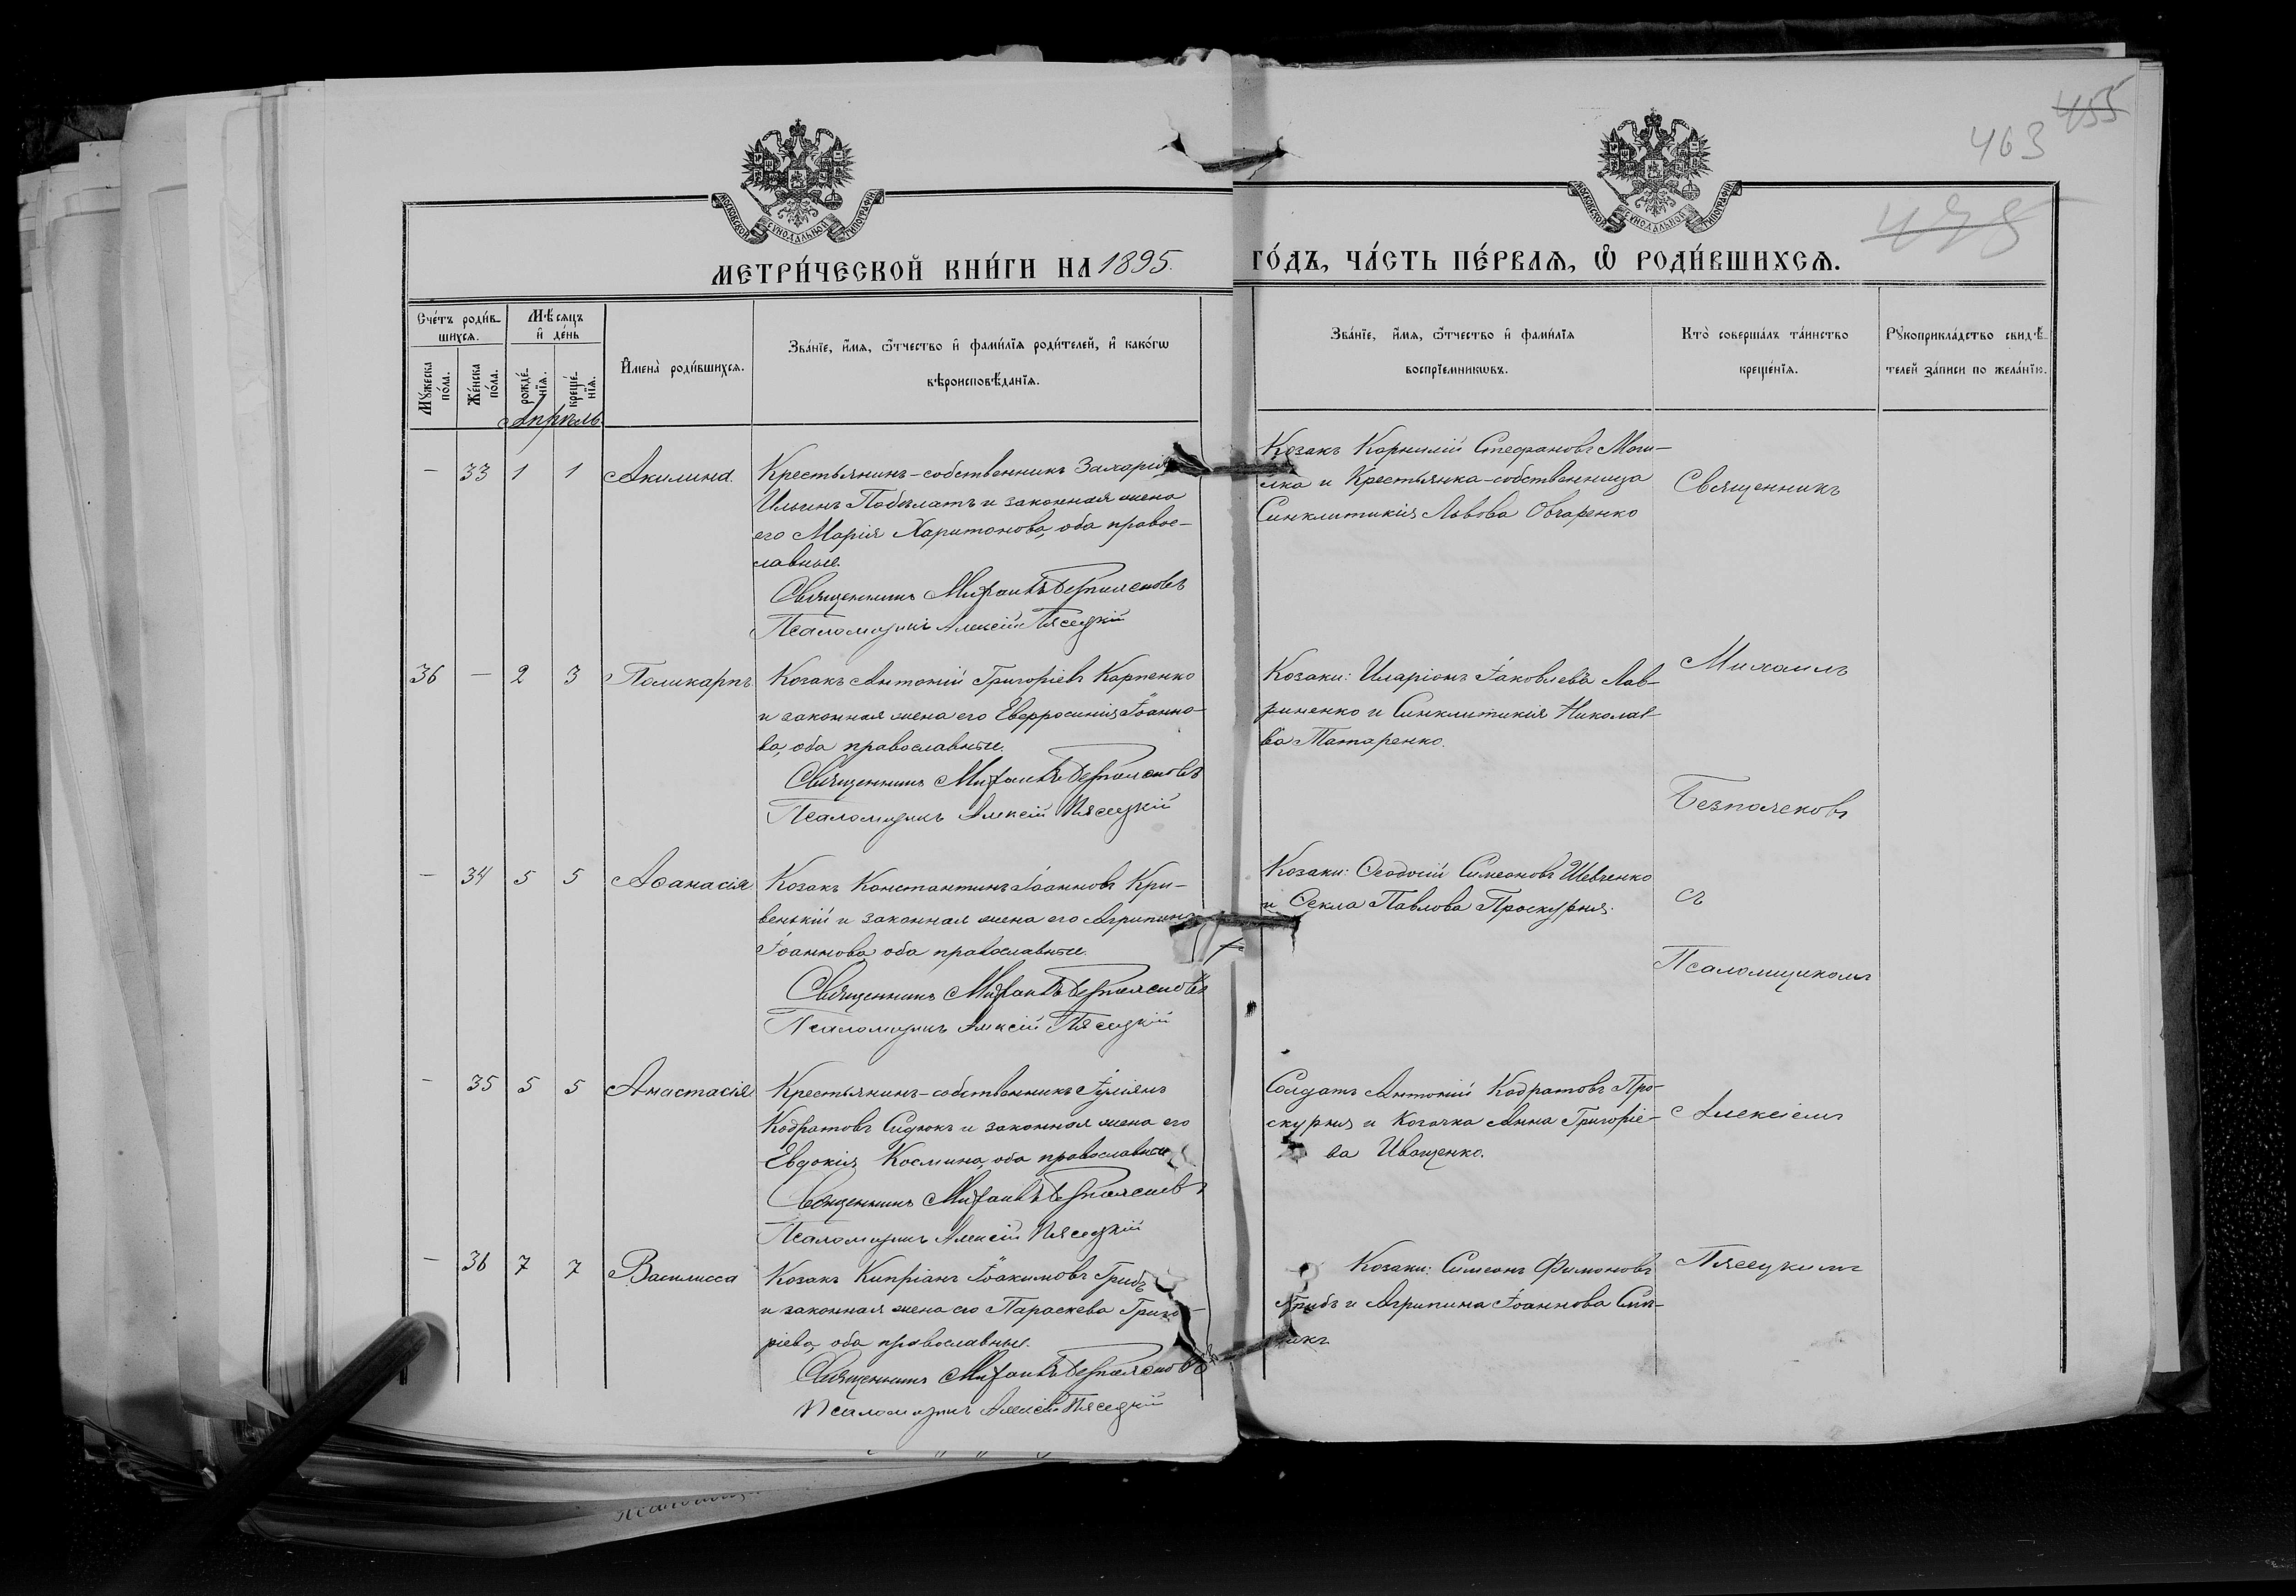 455
463
475
МОСКОВСКОЙ СУНОДАЛЬНОЙ ТИПОГРАФІИ
МОСКОВСКОЙ СУНОДАЛЬНОЙ ТИПОГРАФІИ
МЕТРИ́ЧЕСКОЙ КНИ́ГИ НА 1895. ГО́ДЪ, ЧА́СТЬ ПЕ́РВАѦ, Ѡ РОДИ́ВШИХСѦ.
Сче́тъ роди́в-
шихсѧ.
Мꙋжеска
по́ла.
Же́нска
по́ла.
Мѣ́сѧцъ
и҆ де́нь
рожде́-
нїѧ.
креще́-
нїѧ.
И҆мена̀ роди́вшихсѧ.
Зва́нїе, и҆́мѧ, ѻ҆́тчество и҆ фами́лїѧ роди́телей, и҆ како́гѡ
вѣроисповѣ́данїѧ.
Зва́нїе, и҆́мѧ, ѻ҆́тчество и҆ фами́лїѧ
воспрїемникѡвъ.
Кто̀ соверша́лъ та́инство
креще́нїѧ.
Рꙋкоприкла́дство свидѣ́-
телей за́писи по жела́нїю.
Апрѣль
— 33 1 1 Акилина.
Крестьянинъ-собственникъ Захарія
Ильинъ Побылатъ и законная жена
его Марія Харитонова, оба правос-
лавные.
Священникъ Михаилъ Безпалековъ
Псаломщикъ Алексій Пясецкій
Козакъ Корнилій Стефановъ Моги-
лка и Крестьянка-собственница
Синклитикія Львова Овчаренко
Священникъ
36 — 2 3 Поликарпъ.
Козакъ Антоній Григоріевъ Карпенко
и законная жена его Евфросинія Іоанно-
ва, оба православные.
Священникъ Михаилъ Безпалековъ
Псаломщикъ Алексій Пясецкій
Козаки: Иларіонъ Іаковлевъ Лав-
риненко и Синклитикія Николае-
ва Татаренко.
Михаилъ
Безпалековъ
— 34 5 5 Аѳанасія
Козакъ Константинъ Іоанновъ Кри-
венькій и законная жена его Агрипина
Іоаннова, оба православные.
Священникъ Михаилъ Безпалековъ
Псаломщикъ Алексій Пясецкій
Козаки: Ѳеодосій Симеоновъ Шевченко
и Ѳекла Павлова Проскурня.
съ
Псаломщикомъ
— 35 5 5 Анастасія
Крестьянинъ-собственникъ Іуліанъ
Кодратовъ Сидюкъ и законная жена его
Евдокія Космина, оба православные
Священникъ Михаилъ Безпалековъ
Псаломщикъ Алексій Пясецкій
Солдатъ Антоній Кодратовъ Про-
скурня и Козачка Анна Григоріе-
ва Иващенко.
Алексіемъ
— 36 7 7 Василисса
Козакъ Кипріанъ Іоакимовъ Грибъ
и законная жена его Параскева Григо-
ріева, оба православные.
Священникъ Михаилъ Безпалековъ
Псаломщикъ Алексій Пясецкій
Козаки: Симеонъ Филоновъ
Грибъ и Агрипина Іоаннова
Пясецкимъ